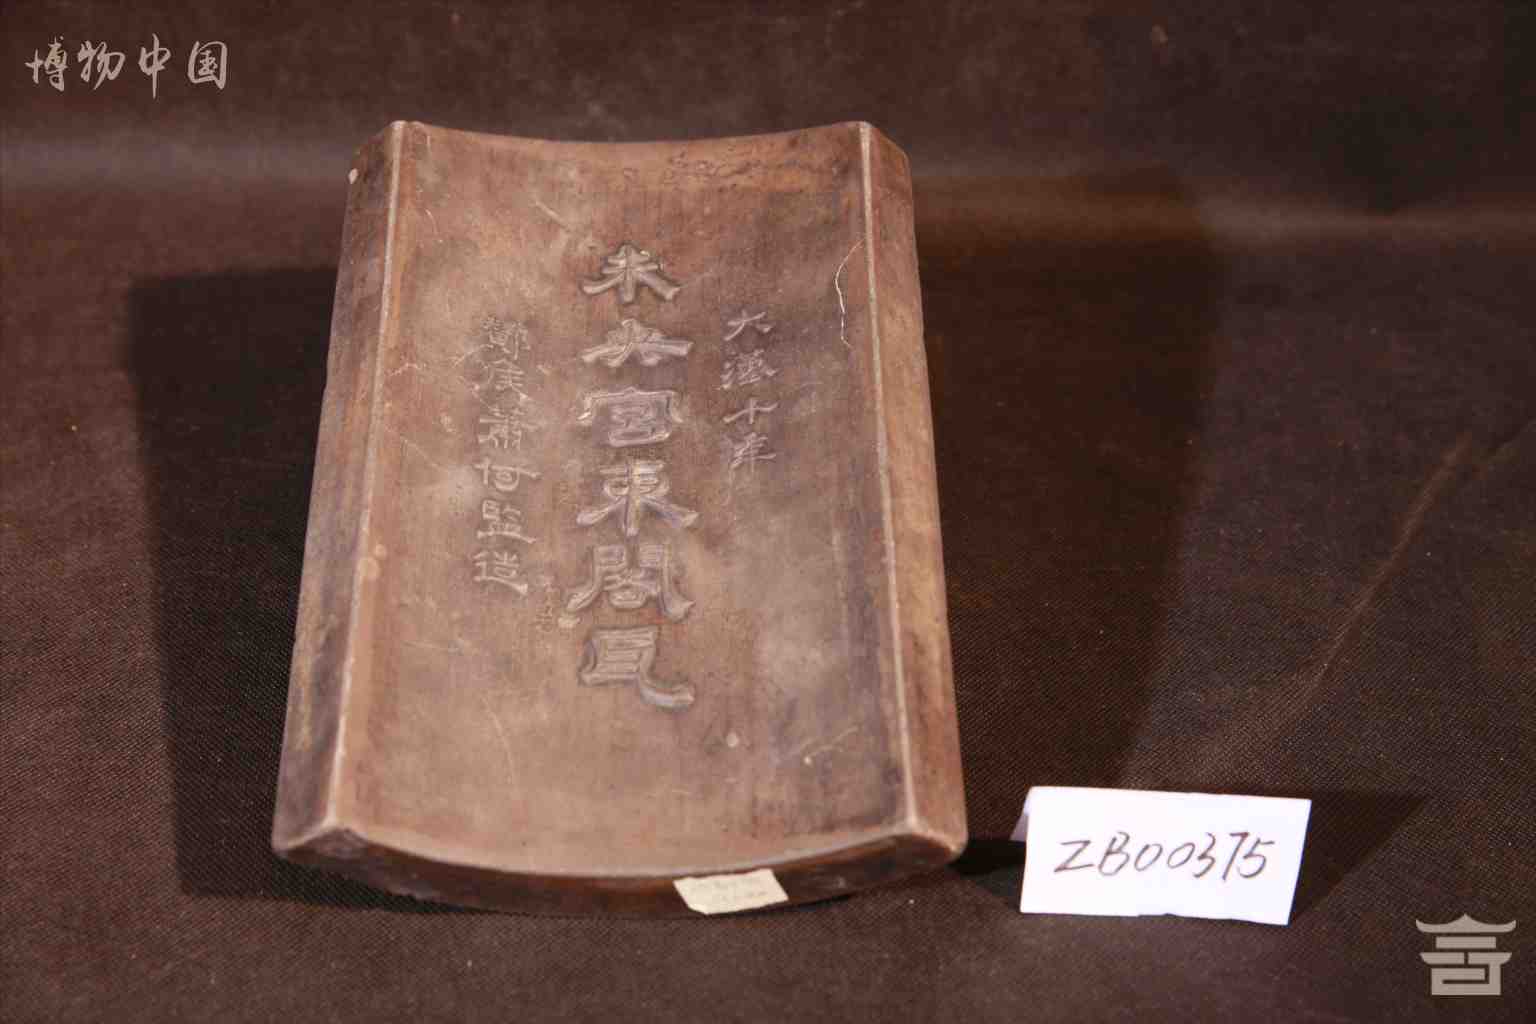 博物中国
大漢十年
未央宮東閣瓦
酇侯蕭何監造
ZB00375